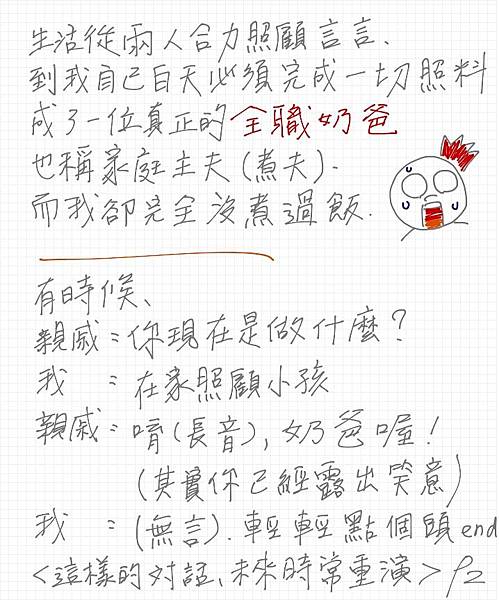 生活從兩人合力照顧言言、
到我自己白天必須完成一切照料
成了一位真正的全職奶爸
也稱家庭主夫(煮夫).
而我卻完全沒煮過飯.
有時候、
親戚:你現在是做什麼?
我 :在家照顧小孩
親戚:唷(長音),奶爸喔!
(其實你已經露出笑意)
我 :(無言).輕輕點個頭end
<這樣的對話、未來時常重演> P2